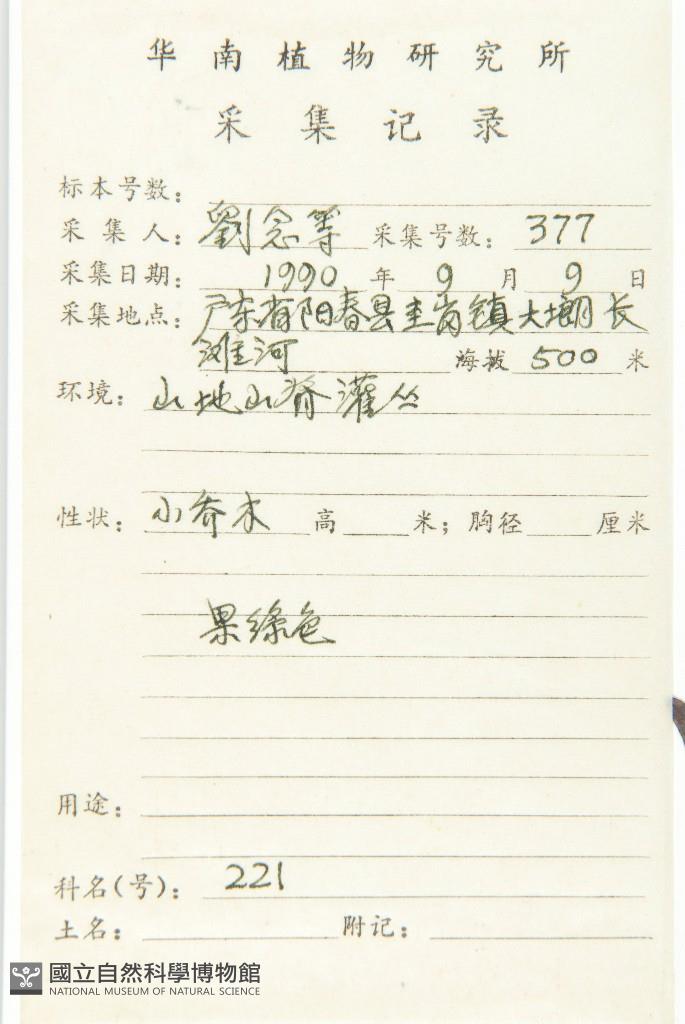 华南植物研究所
采集记录
标本号数:
采集人: 劉念等 采集号数: 377
采集日期: 1990 年 9 月 9 日
采集地点: 广东省阳春县圭岗镇大塱长
滩河 海拔 500 米
环境: 山地山脊灌丛
性状: 小乔木 高 米; 胸径 厘米
果绿色
用途:
科名(号): 221
土名: 附记:
國立自然科學博物館
NATIONAL MUSEUM OF NATURAL SCIENCE